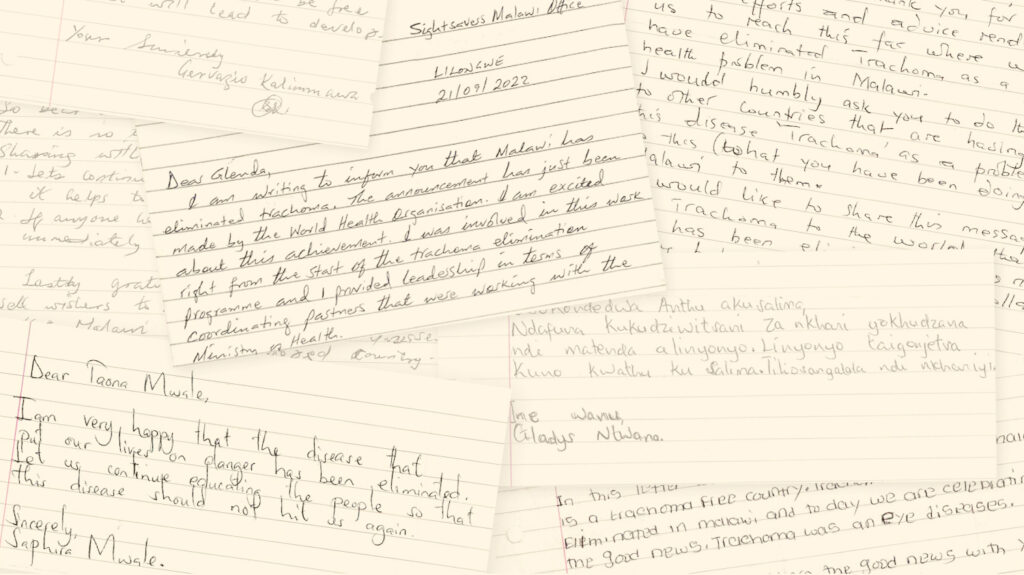 be free
will lead to develop
Your Sincerely
Gervazio Kalimmawa
Sightsavers Malawi Office
LILONGWE
21/09/2022
Dear Glenda,
I am writing to inform you that Malawi has
eliminated trachoma. The announcement has just been
made by the World Health Organisation. I am excited
about this achievement. I was involved in this work
right from the start of the trachoma elimination
programme and I provided leadesship in terms of
coordinating partners that were working with the
Ministry of Health.
you, for
efforts and advice rend
us to reach this far where w
have eliminated Trachoma as a
health problem in Malawi.
I would humbly ask you to do the
to other countries that are having
this disease Trachoma as a proble
this (to what you have been doing
Malawi to them.
would like to share this messag
Trachoma to the world that
has been eli
there is no
Sharing with
1. Lets continu
it helps to
2. If anyone
immediately
Lastly grat
to
Malawi
country.
Dear Taona Mwale,
I am very happy that the disease that
put our lives on danger has been eliminated.
Let us continue educating the people so that
this disease should not hit us again.
Sncerely,
Saphira Mwale.
Anthu akusalima,
Ndafuna kukudziwitsani za nkhani yokhudzana
ndi matenda alinyonyo. Linyonyo taigonjetsa
kuno kwathu ku Salima. Tiliosangalala ndi nkhaniyi.
Ine wanu,
Gladys Ntwana.
In this letter
is a trachoma free country. Trachom
Eliminated in malawi and to day we are celebratin
the good news. Trachoma was an eye diseases.
the good news with Y